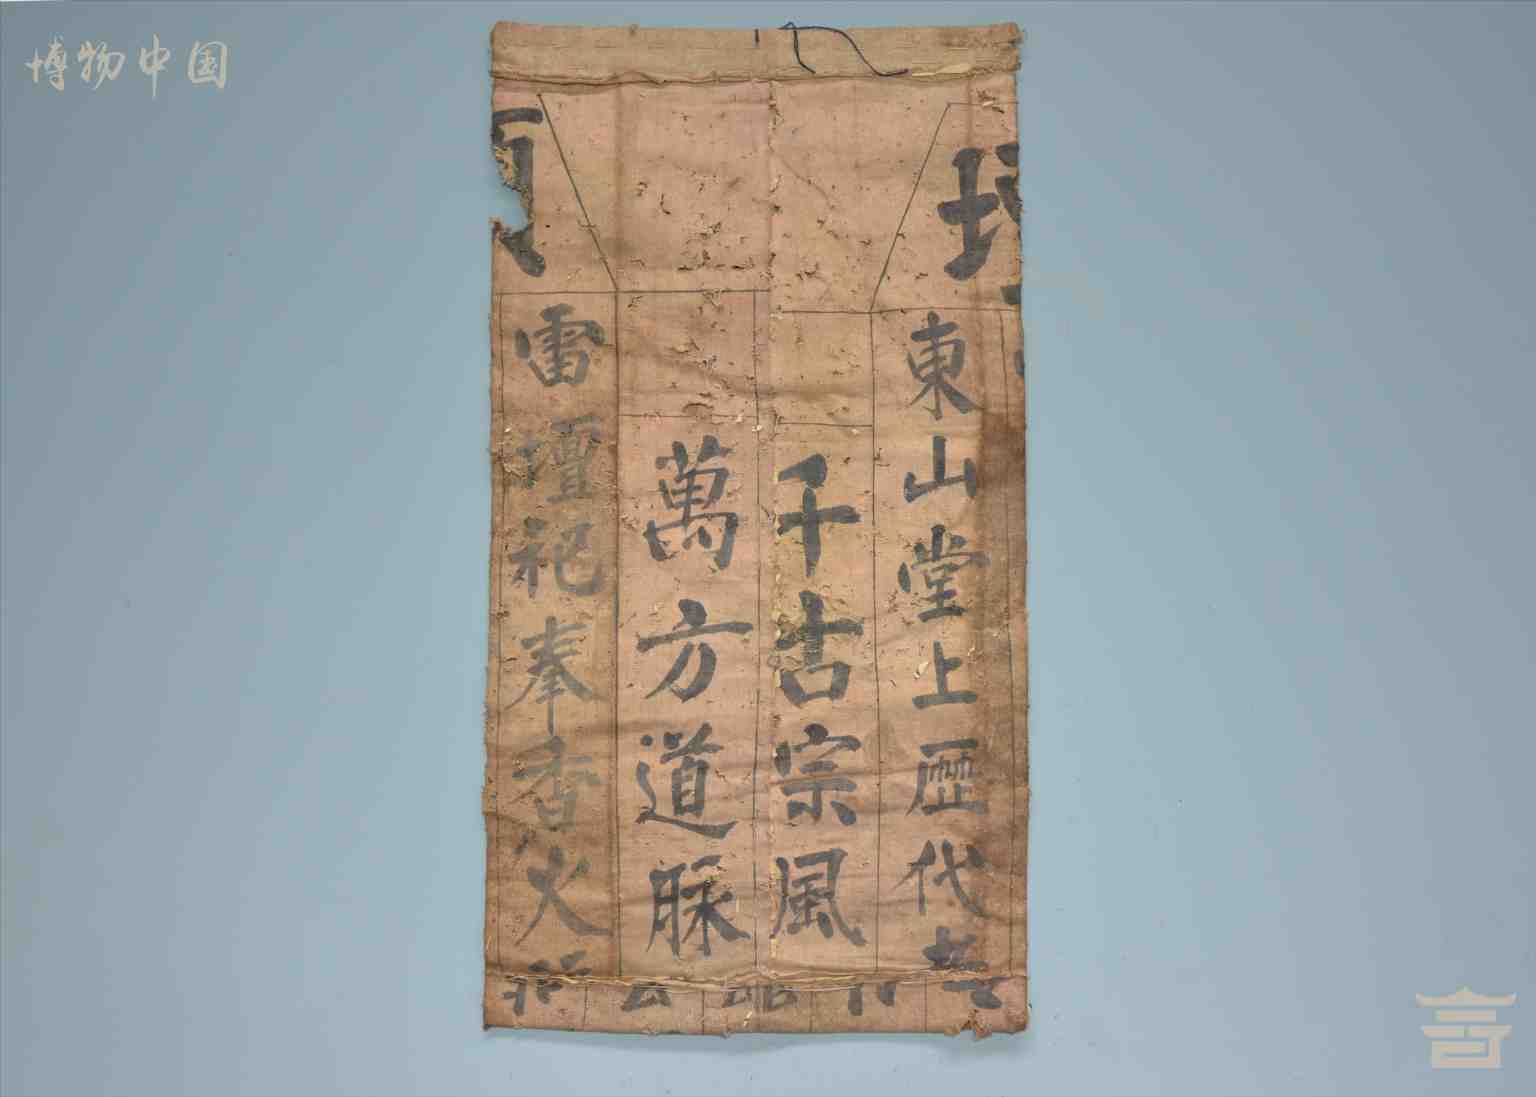 博物中国
東山堂上歷代
千古宗風
萬方道脈
雷壇祀奉香火